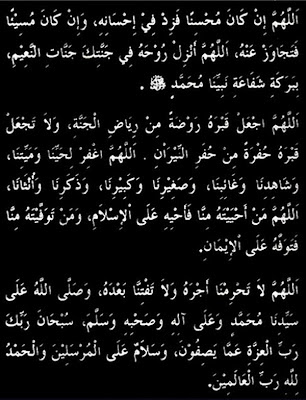 اَللَّهُمَّ إِنْ كَانَ مُحْسِنًا فَزِدْ فِيْ إِحْسَانِهِ، وَإِنْ كَانَ مُسِيْئًا
فَتَجَاوَزْ عَنْهُ، اَللَّهُمَّ أَنْزِلْ رُوْحَهُ فِيْ جَنَّتِكَ جَنَّاتِ النَّعِيْمِ،
بِبَرَكَةِ شَفَاعَةِ نَبِيِّنَا مُحَمَّدٍ ﷺ .
اَللَّهُمَّ اجْعَلْ قَبْرَهُ رَوْضَةً مِنْ رِيَاضِ الْجَنَّةِ، وَلَا تَجْعَلْ
قَبْرَهُ حُفْرَةً مِنْ حُفَرِ النِّيْرَانِ . اَللَّهُمَّ اغْفِرْ لِحَيِّنَا وَمَيِّتِنَا،
وَشَاهِدِنَا وَغَائِبِنَا، وَصَغِيْرِنَا وَكَبِيْرِنَا، وَذَكَرِنَا وَأُنْثَانَا،
اَللَّهُمَّ مَنْ أَحْيَيْتَهُ مِنَّا فَأَحْيِهِ عَلَى الْإِسْلَامِ، وَمَنْ تَوَفَّيْتَهُ مِنَّا
فَتَوَفَّهُ عَلَى الْإِيْمَانِ.
اَللَّهُمَّ لَا تَحْرِمْنَا أَجْرَهُ وَلَا تَفْتِنَّا بَعْدَهُ، وَصَلَّى اللَّهُ عَلَى
سَيِّدِنَا مُحَمَّدٍ وَعَلَى آلِهِ وَصَحْبِهِ وَسَلَّمَ، سُبْحَانَ رَبِّكَ
رَبِّ الْعِزَّةِ عَمَّا يَصِفُوْنَ، وَسَلَامٌ عَلَى الْمُرْسَلِيْنَ وَالْحَمْدُ
لِلَّهِ رَبِّ الْعَالَمِيْنَ.